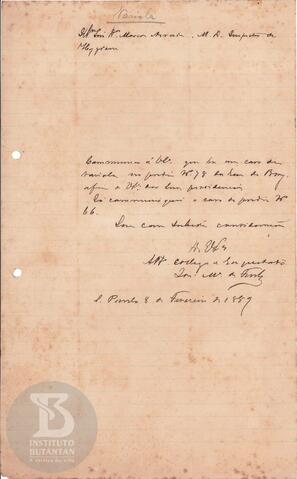 Variola
Illmo Snr Dr. Marcos Arruda. M. D. Inspector de
Hygiene
Communico á VS. que ha um caso de
variola no predio Nº 78 da rua do Braz,
afim de VS. dar suas providencias.
Já communiquei o caso do predio Nº
66.
Sou com subida consideração
de VS.
Attº collega e
S. Paulo 8 de Fevereiro de 1889
INSTITUTO
BUTANTAN
A serviço da vida